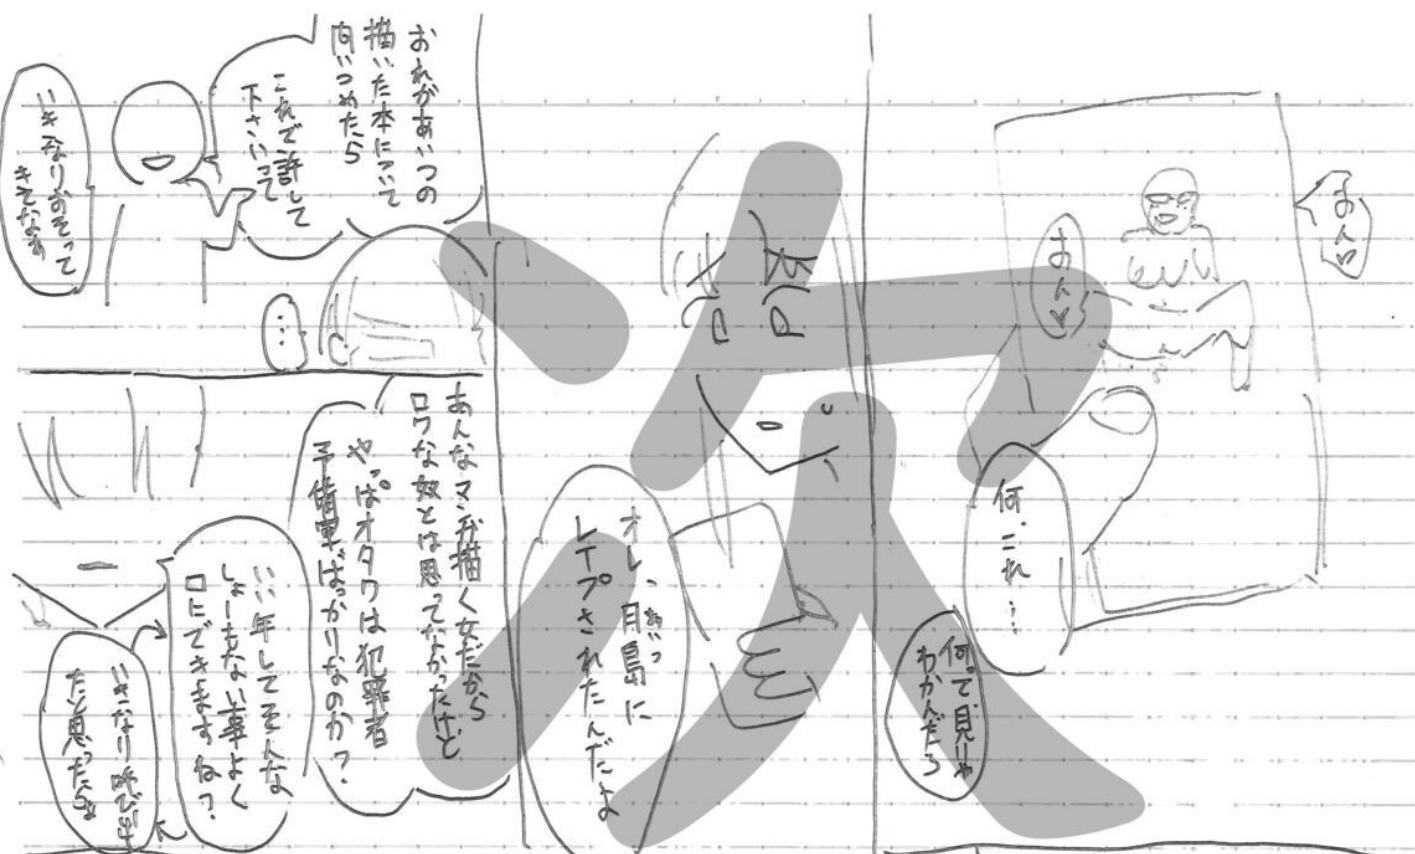 あん♡
あん♡
何、これ…
何って見りゃ
わかんだろ
オレ、月島に
あいつ
レイプされたんだよ
おれがあいつの
描いた本について
問いつめたら
これで許して
下さいって
いきなりおそって
きてなぁ
…
あんなマンガ描く女だから
ロクな奴とは思ってなかったけど
やっぱオタクは犯罪者
予備軍ばっかりなのか?
いい年してそんな
しょーもない事よく
口にできますね?
いきなり呼び出し
たと思ったらよ
次